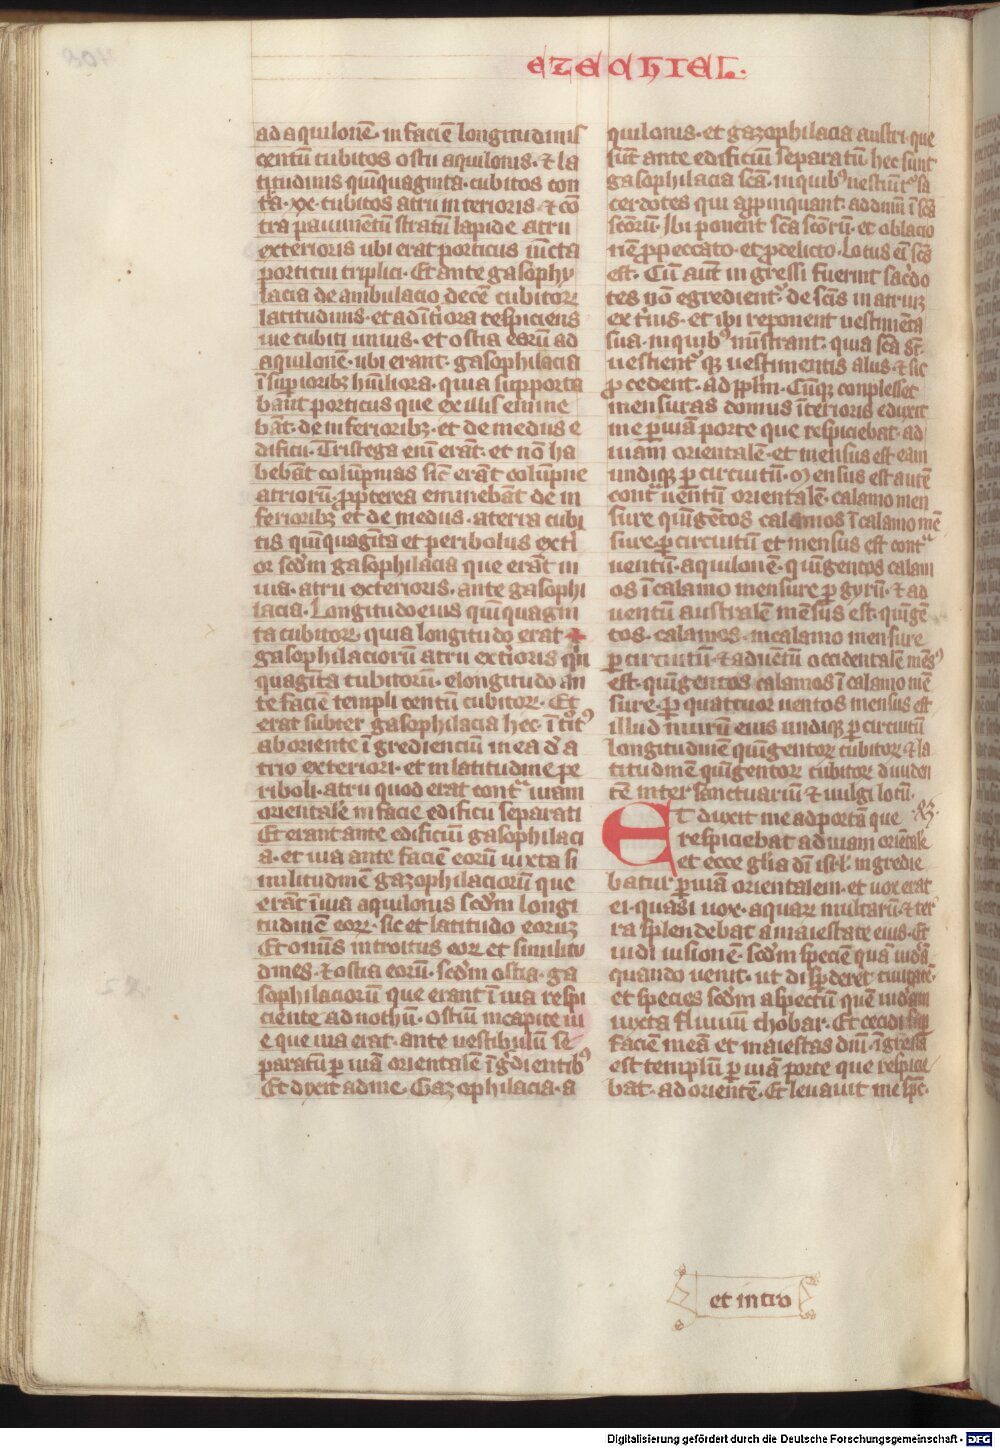 EZECHIEL.
ad aquilonē· in faciē longitudinis
centū cubitos ostii aquilonis· ⁊ la
titudinis qūiquaginta· cubitos con
tᵃ· xx· cubitos atrii interioris· ⁊ cō
tra pauimētū stratū lapide atrii
exterioris ubi erat porticus iūcta
porticui triplici· Et ante gasophy
lacia de ambulacio decē cubitoꝝ
latitudinis· et ad īt̓iora respiciens
uie cubiti unius· et ostia eoꝝū ad
aquilonē· ubi erant· gasophilacia
ī suꝑioribꝫ hūiliora· quia supporta
bāut porticus que ex illis emine
bāt· de inferioribꝫ· et de mediis e
dificii· Tristega eni erāt· et nō ha
bebāt colūpnas sic̄ erāt colūpne
atrioꝝū· ꝓpterea eminebāt de in
ferioribꝫ et de mediis· a terra cubi
tis qūiquagīta et peribolus exti
or scdm̄ gasophilacia que erāt in
uia· atrii exterioris· ante gasophi
lacia· Longitudo eius qūiquagin
ta cubitoꝝ quia longitudo erat
gasophilacioꝝū atrii ext̓ioris qūi
quagīta cubitoꝝū· e longitudo an
te faciē templi centū cubitoꝝ· Et
erat subter gasophilacia hec· īt̓oit᷒
ab oriente ī gredienciū in ea d̓ a
trio exteriori· et in latitudine pe
riboli· atrii quod erat contᵃ uiam
orientalē in facie edificii separati
Et erant ante edificiū gasophilaci
a· et uia ante faciē eoꝝū iuxta si
militudinē gazophilacioꝝū que
erāt ī uia aquilonis scdm̄ longi
tudinē eoꝝ· sic et latitudo eoꝝ
Et omīs introitus eoꝝ et similitu
dines· ⁊ ostia eoꝝū· scdm̄ ostia· ga
sophilacioꝝū que erant ī uia respi
ciente ad nothū· ostiū in capite ui
e que uia erat· ante uestibulū se
paratū ꝑ uiā orientalē īg̓dientib᷒
Et dixit ad me· Gazophilacia· a
quilonis· et gazophilacia austri· que
sūt ante edificiū separatū hec sunt
gasophilacia scā· in quib᷒ uestiūt᷒ sa
cerdotes qui apꝓinquant· ad dnm̄ ī scā
scōꝝū· Ibi ponent scā scōꝝū· et oblacio
nē ꝓ peccato· et ꝓ delicto· Locus eī scs̄
est· Cū aūt in gressi fuerint sac̓do
tes nō egredient᷒· de scīs in atriū
ext̓ius· et ibi reponent uestimēta
sua· in quib᷒ mīstrant· quia scā st̄·
uestient᷒ qꝫ uestimentis aliis· ⁊ sic
ꝓcedent· ad ppl̄m· Cūqꝫ complesset
mensuras domus īterioris eduxit
me ꝑ uiā porte que respiciebat· ad
uiam orientalē· et mensus est eam
undiqꝫ ꝑ circuitū· Mensus est autē
contᵃ uentū orientalē· calamo men
sure qūigētos calamos ī calamo mē
sure· ꝑ circuitū et mensus est contᵃ
uentū· aquilonē· qūigentos calam
os ī calamo mensure ꝑ gyrū· ⁊ ad
uentū australē mēsus est· qūigē
tos· calamos· in calamo mensure
ꝑ circuitū· ⁊ ad uētū occidentalē mēs᷒
est· qūigentos calamos ī calamo mē
sure· ꝑ quatuor uentos mensus est
illud muruꝫ eius undiqꝫ ꝑ circuitū
longitudinē qūigentoꝝ cubitoꝝ ⁊ la
titudinē qūigentoꝝ cubitoꝝ diuiden
tē inter sanctuariū ⁊ uulgi locū·
ET duxit me ad portā que
respiciebat ad uiam orientalē
et ecce glīa dī isrl̄· ingredie
batur ꝑ uiā orientalem· et uox erat
ei· quasi uox· aquaꝝ multarū· ⁊ ter
ra splendebat a maiestate eius· Et
uidi uisionē· scdm̄ speciē quā uid̓ā
quando uenit· ut disꝑderet ciuitatē·
et species scdm̄ aspectū quē uid̓am
iuxta fluuiū chobar· Et cecidi suꝑ
faciē meā et maiestas dnī· īgressa
est templū ꝑ uiā porte que respicie
bat· ad orientē· Et leuauit me spc̄·
et intro
Digitalisierung gefördert durch die Deutsche Forschungsgemeinschaft - DFG